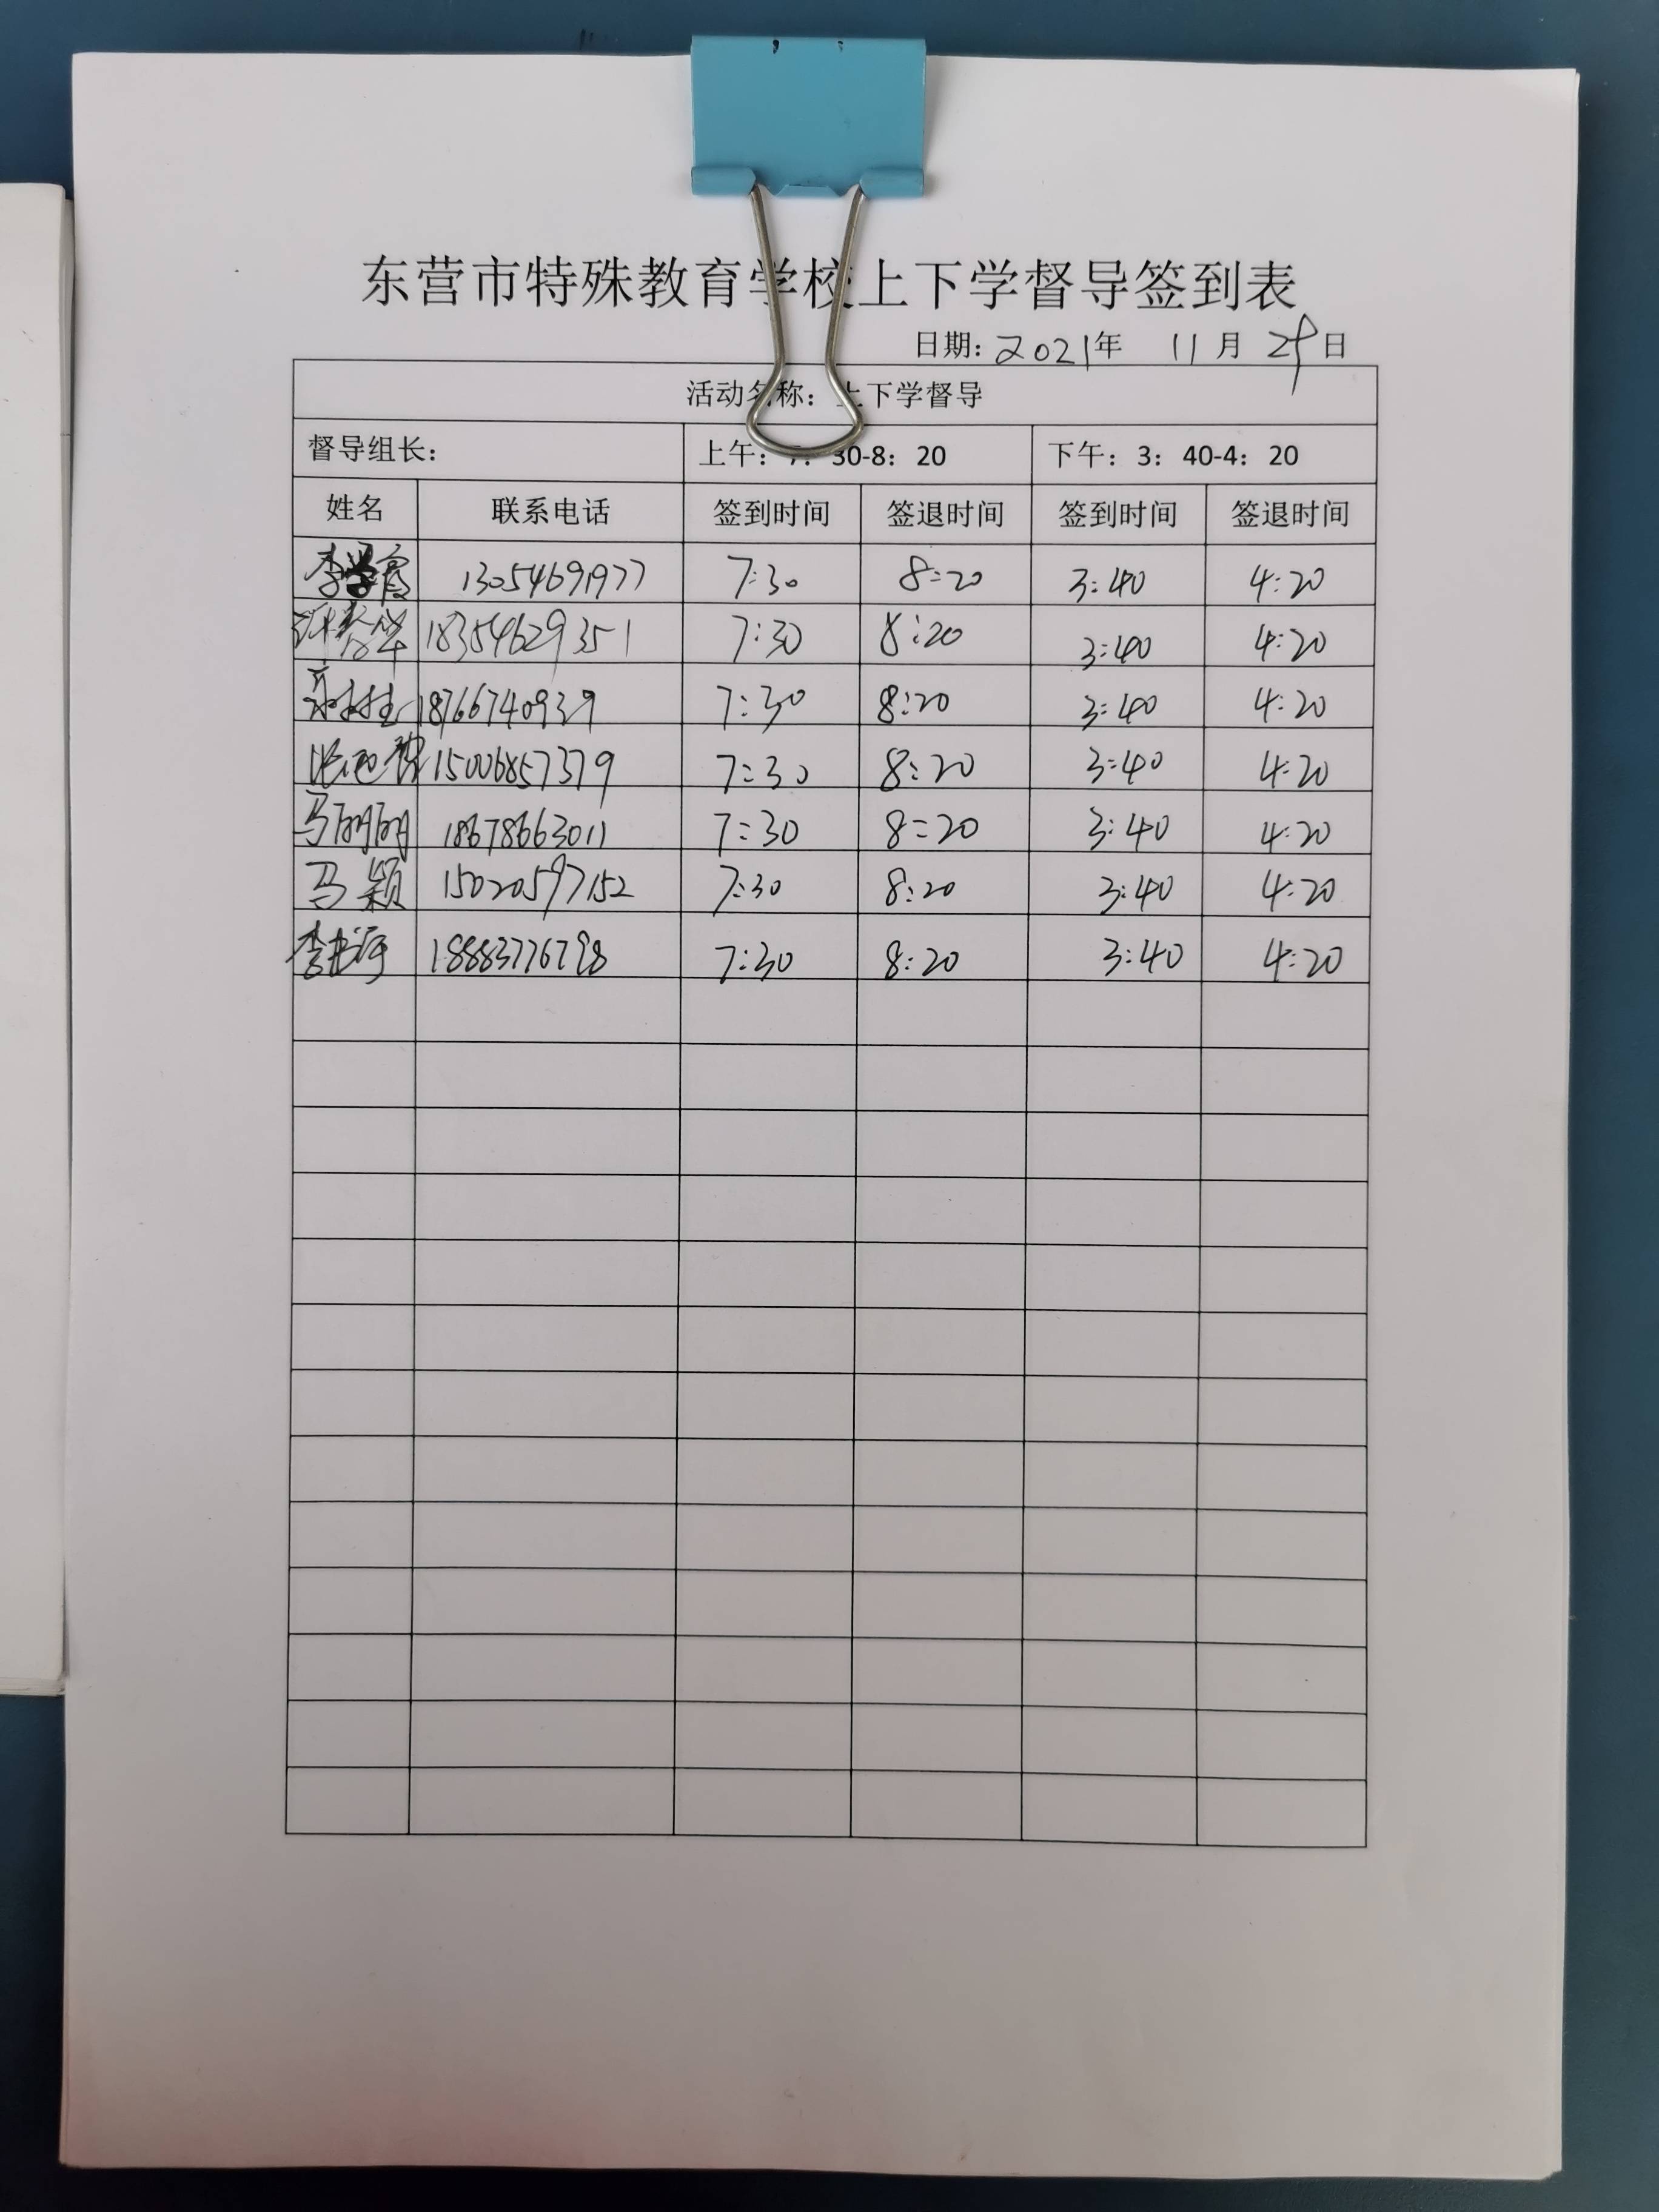 东营市特殊教育学校上下学督导签到表
日期: 2021年 11月 29日
活动名称: 上下学督导
督导组长: 上午: 7: 30-8: 20 下午: 3: 40-4: 20
姓名 联系电话 签到时间 签退时间 签到时间 签退时间
李学霞 13054691977 7:30 8:20 3:40 4:20
18354629351 7:30 8:20 3:40 4:20
18766740939 7:30 8:20 3:40 4:20
15006857379 7:30 8:20 3:40 4:20
马丽丽 18678663011 7:30 8:20 3:40 4:20
马颖 15020597152 7:30 8:20 3:40 4:20
18883776798 7:30 8:20 3:40 4:20